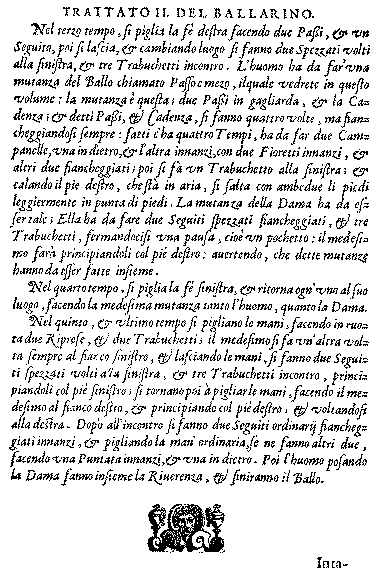 TRATTATO II. DEL BALLARINO.
Nel terzo tempo, si piglia la fè destra facendo due Passi, & vn
Seguito, poi si lascia, & cambiando luogo si fanno due Spezzati volti
alla sinistra, & tre Trabuchetti incontro. L'huomo ha da far vna
mutanza del Ballo chiamato Passo e mezo, ilquale vedrete in questo
volume: la mutanza è questa; due Passi in gagliarda, & la Ca-
denza; & detti Passi, & Cadenza, si fanno quattro volte, ma fian-
cheggiandosi sempre: fatti c'ha quattro Tempi, ha da far due Cam-
panelle, vna in dietro, & l'altra innanzi, con due Fioretti innanzi, &
altri due fiancheggiati; poi si fà vn Trabuchetto alla sinistra; &
calando il piè destro, che stà in aria, si salta con ambedue li piedi
leggiermente in punta di piedi. La mutanza della Dama ha da es-
ser tale; Ella ha da fare due Seguiti spezzati fiancheggiati, & tre
Trabuchetti, fermandocisi vna pausa, cioè vn pochetto: il medesi-
mo farà principiandoli col piè destro: auertendo, che dette mutanze
hanno da esser fatte insieme.
Nel quarto tempo, si piglia la fè sinistra, & ritorna ogn'vno al suo
luogo, facendo la medesima mutanza tanto l'huomo, quanto la Dama.
Nel quinto, & vltimo tempo si pigliano le mani, facendo in ruo-
ta due Riprese, & due Trabuchetti; il medesimo si fa vn'altra vol-
ta sempre al fianco sinistro; & lasciando le mani, si fanno due Segui-
ti spezzati volti alla sinistra, & tre Trabuchetti incontro, princi-
piandoli col piè sinistro; si tornano poi à pigliar le mani, facendo il me-
desimo al fianco destro, & principiando col piè destro; & voltandosi
alla destra. Dopò all'incontro si fanno due Seguiti ordinarij fiancheg-
giati innanzi, & pigliando la mani ordinaria, se ne fanno altri due,
facendo vna Puntata innanzi, & vna in dietro. Poi l'huomo posando
la Dama fanno insieme la Riuerenza, & finiranno il Ballo.
Inta-